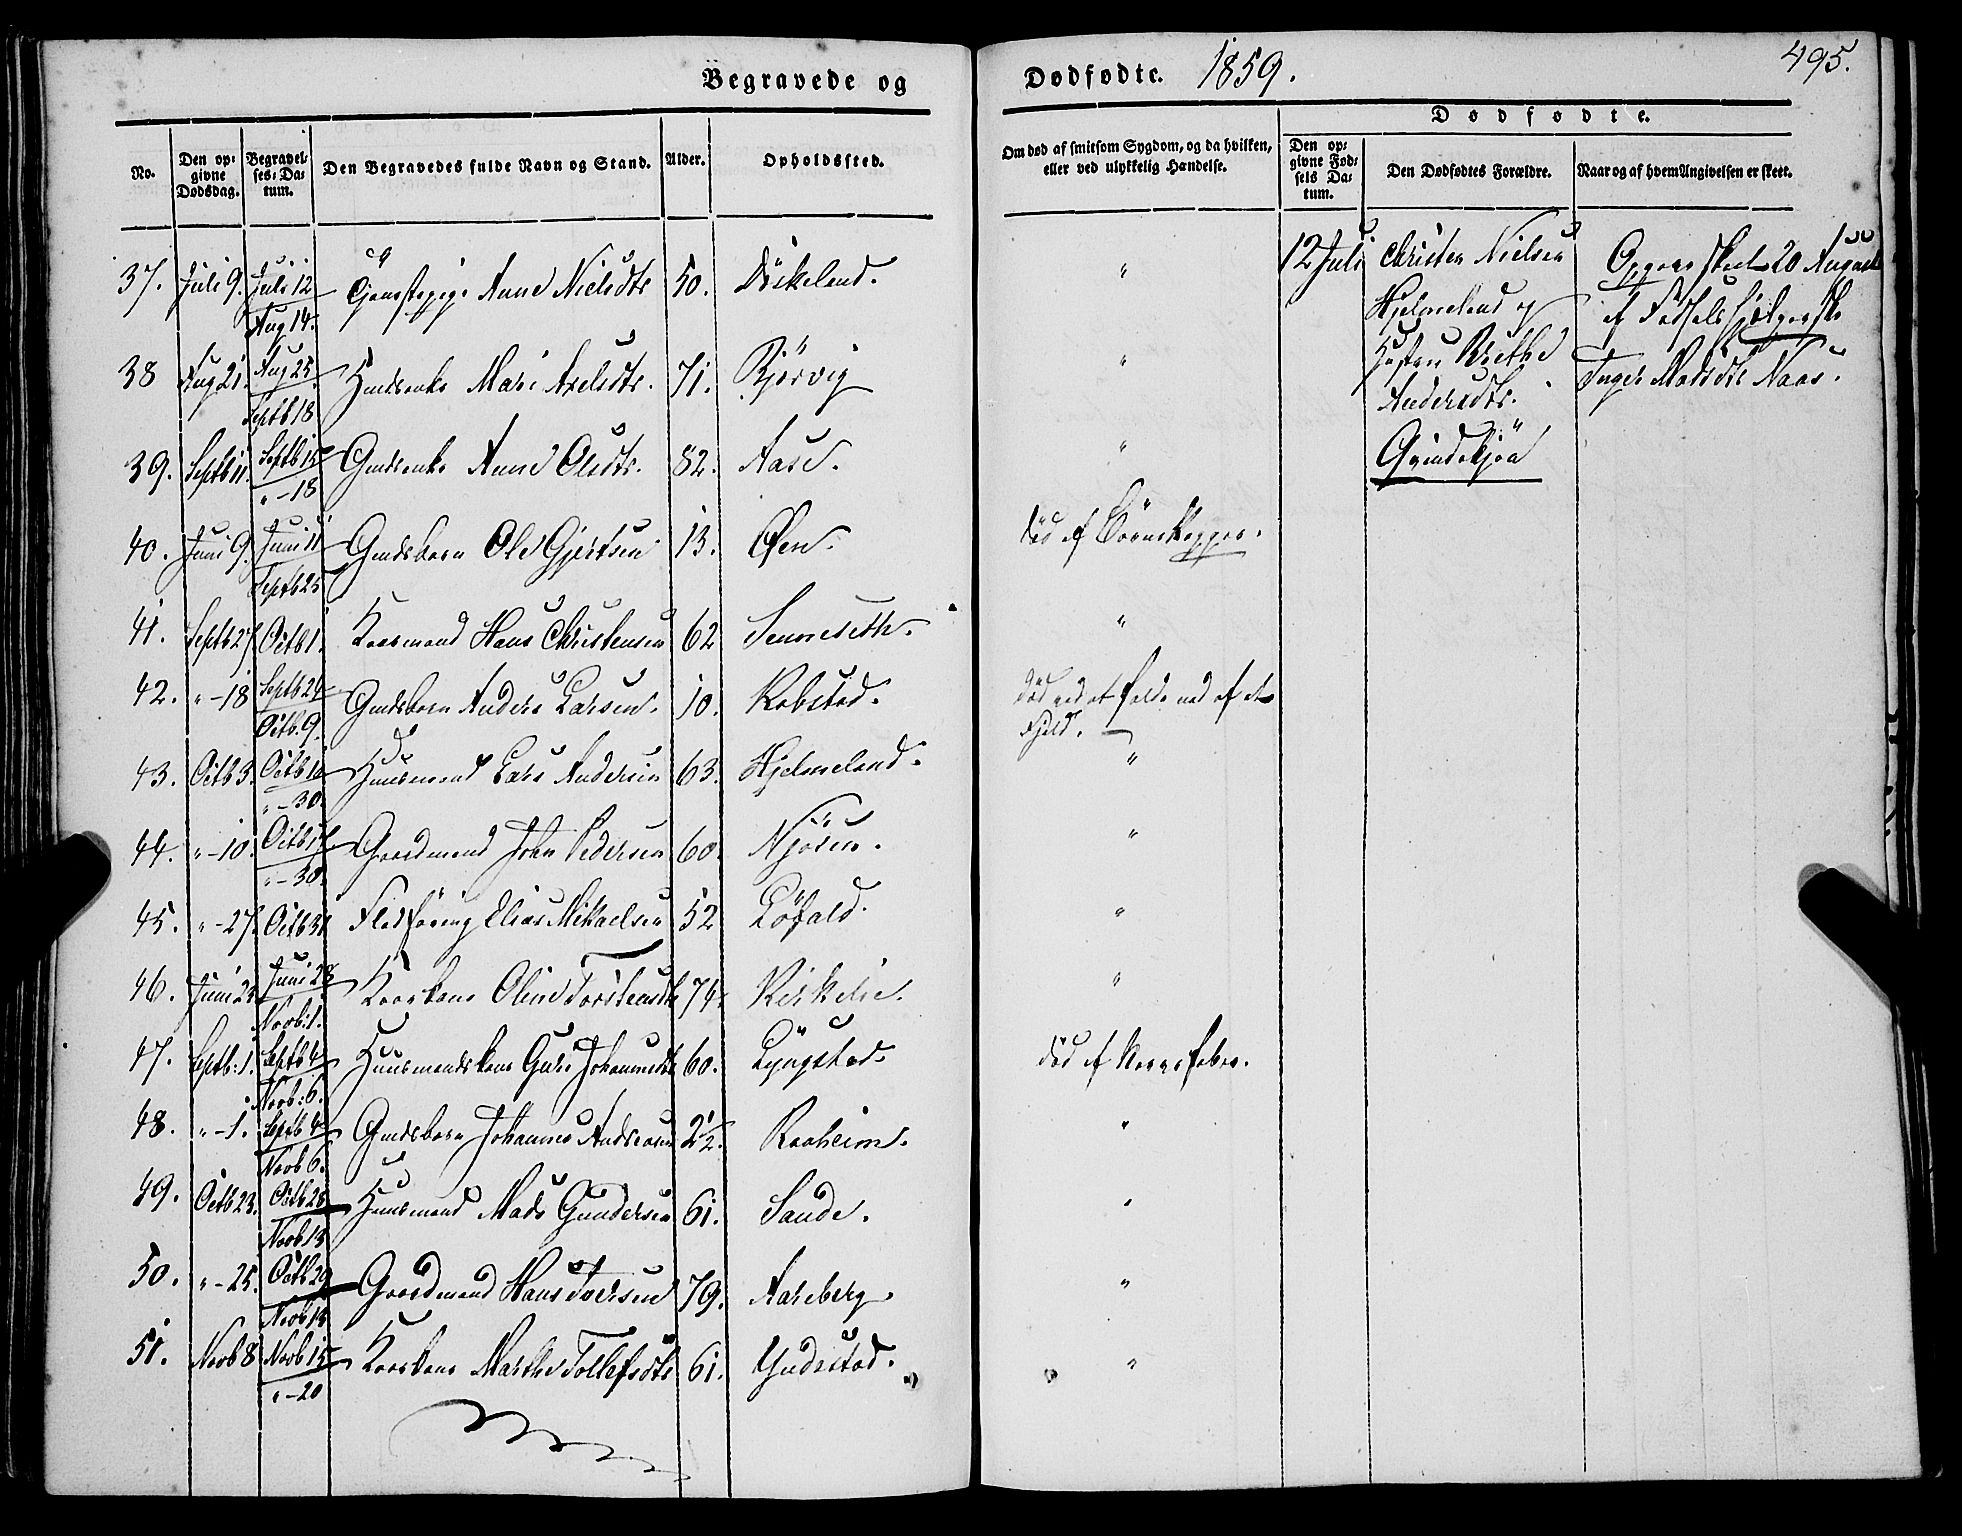 Begravede og Dødfødte. 1859. 495.
No. Den opgivne Dødsdag. Begravelses-Datum. Den Begravedes fulde Navn og Stand. Alder. Opholdssted. Om død af smitsom Sygdom, og da hvilken, eller ved ulykkelig Hændelse.
Dødfødte.
Den opgivne Fødsels Datum. Den Dødfødtes Forældre. Naar og af hvem Angivelsen er skeet.
37. Juli 9. Juli 12 Aug 14. Anne Nielsdtr 50. "
38 Aug 21. Aug 25. Septb 18 Mari Axelsdtr. 71. "
39. Septb 11. Septb 15 " - 18 Anne Olsdtr. 82. Aase. "
40. Juni 9. Juni 11 Septb 25 Gmdsbarn Ole Gjertsen 13. Øen. død af
41. Septb 27 Octb 1. Kaarmand Hans Christensen 62 Senneseth. "
42. " - 18 Septb 24 Octb. 9. Gmdsbarn Anders Larsen. 10. Robstad. død ved at falde ned af et
Fjeld.
43. Octb 3. Octb 10 " - 30. Huusmand Lars Andersen 63. Hjelmeland. "
44. " - 10. Octb 14 " - 30. Gaardmand John Pedersen 60. Njøsen. "
45. " - 27. Octb 31 Elias Mikaelsen 52 Løfald. "
46. Juni 23 Juni 28 Novb: 1. Kaarkone Oline Torstensdtr 74. "
47. Septb: 1. Septb 4 Novb: 6. Huusmandskone Guri Johannesdtr 60. Lyngstad død af Nervefeber.
48. " - 1. Septb 4 Novb 6. Gmdsbarn Johannes Andreasen 2½. Raaheim. "
49. Octb 23. Octb 28 Novb 13 Huusmand Mads Gundersen 61. Sande. "
50. " - 25. Octb 29 Novb 13 Gaardmand Hans Iversen 79. Aarberg. "
51. Novb 8 Novb 15 " - 20 Kaarkone Marthe Tollefsdtr 61. Yndestad. "
12 Juli Christen Nielsen
Hjelmeland og
Hustru Brithe
Andersdtr.
Grindekjøn
20 August
af
Inger Madsdtr Naas.